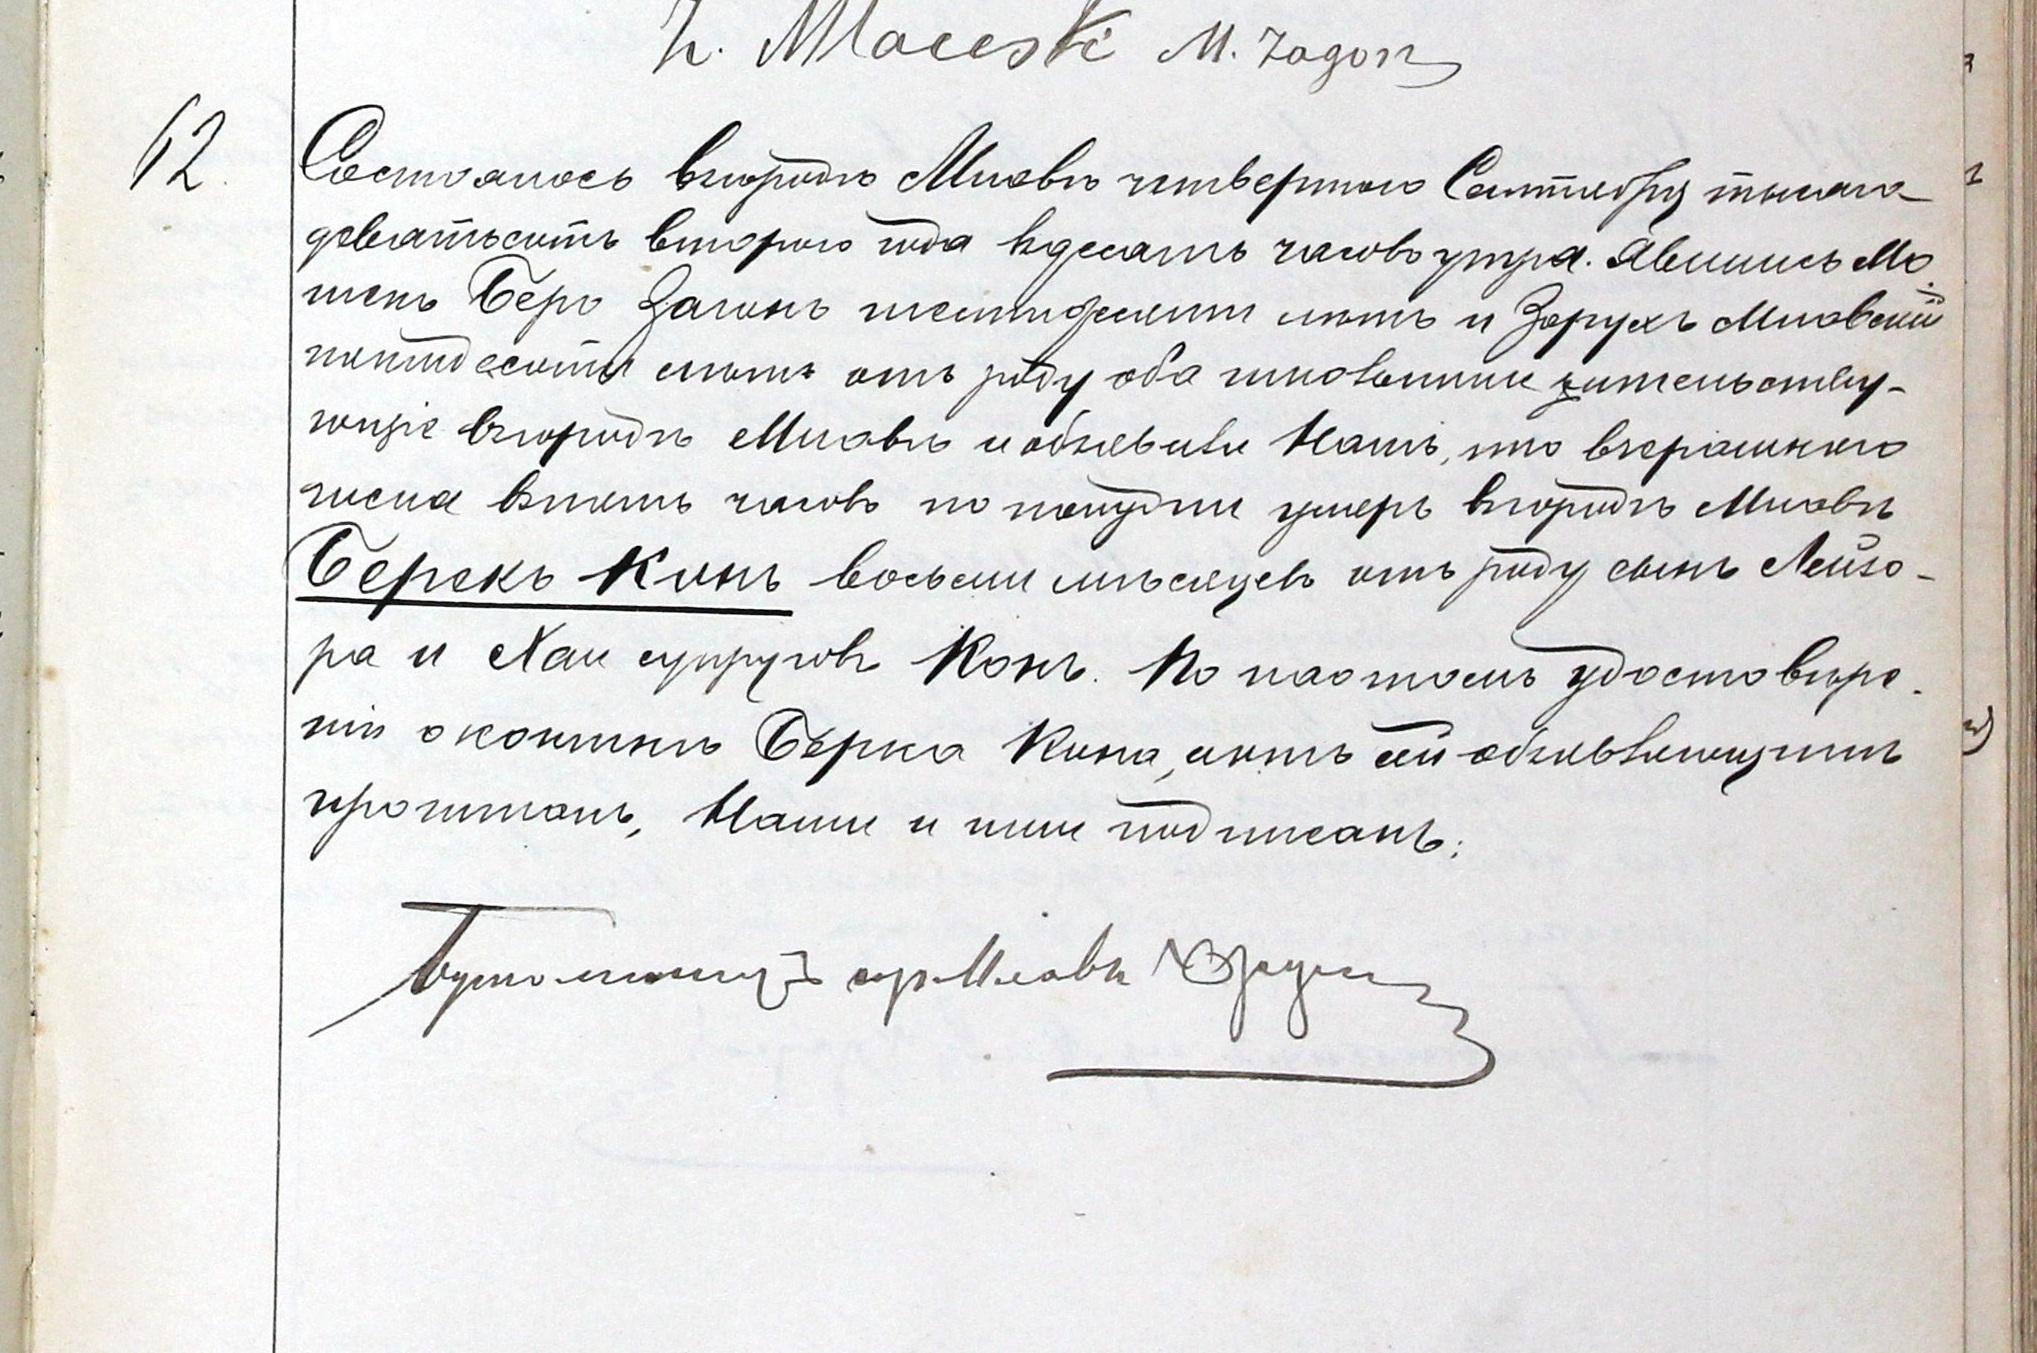 Z. Mlawski M. Zagon
62.
Состоялось въ городѣ Млавѣ четвертаго Сентября тысяча
девятьсотъ второго года въ десять часовъ утра. Явились Мо-
шекъ Беръ Загонъ шестидесяти лѣтъ и Зорухъ Млавскій
пятидесяти лѣтъ отъ роду оба чиновники жительству-
ющіе въ городѣ Млавѣ и объявили Намъ, что вчерашняго
числа въ пять часовъ по полудни умеръ въ городѣ Млавѣ
Берекъ Конъ восьми мѣсяцевъ отъ роду сынъ Лейзо-
ра и Хаи супруговъ Конъ. По настоящемъ удостовѣре-
ніи о кончинѣ Берка Кона, актъ сей объявляющимъ
прочитанъ, Нами и ними подписанъ:
гор. Млавы